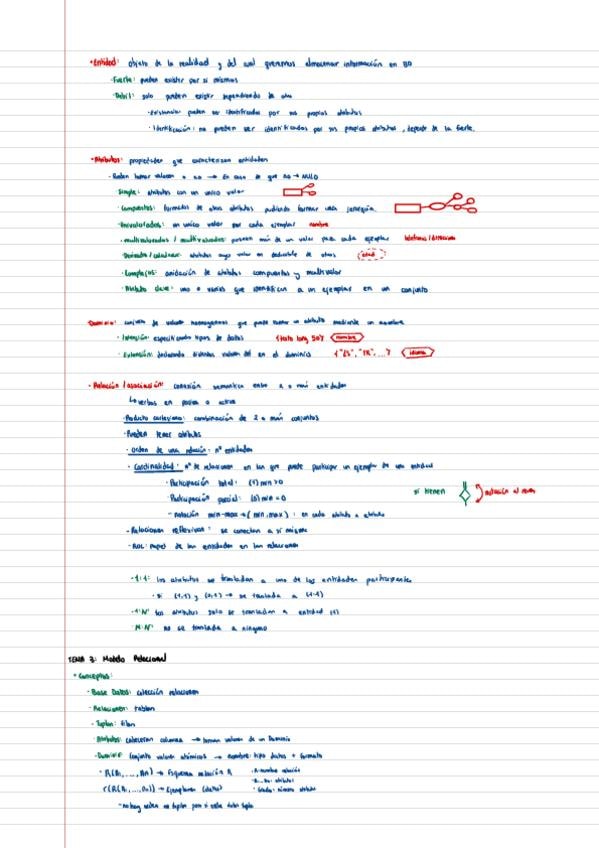 • Entidad: objeto de la realidad y del cual queremos almacenar información en BD
- Fuerte: pueden existir por sí mismas
- Débil: solo pueden existir dependiendo de otra
- Existencia: pueden ser identificadas por sus propios atributos
- Identificación: no pueden ser identificadas por sus propios atributos, depende de la fuerte.
• Atributos: propiedades que caracterizan entidades
- Pueden tomar valores o no → En caso de que no → NULO
- Simple: atributos con un unico valor
- Compuestos: formados de otros atributos pudiendo formar una jerarquía.
- Univaluados: un unico valor por cada ejemplar nombre
- multivalorados / multivaluados: poseen más de un valor para cada ejemplar telefonos/direccion
- Derivados / calculados: atributos cuyo valor es deducible de otros edad
- Complejos: anidación de atributos compuestos y multivalor
- Atributo clave: uno o varios que identifican a un ejemplar en un conjunto
• Dominio: conjunto de valores homogeneos que puede tomar un atributo mediante un nombre
- Intensión: especificando tipos de datos (texto long 50) nombre
- Extensión: declarando distintos valores del en el dominio {"ES", "FR", ...} idioma
- Relación / asociación: conexión semantica entre 2 o más entidades
↳ verbos en pasiva o activa
- Producto cartesiano: combinación de 2 o más conjuntos
- Pueden tener atributos
- Orden de una relación: nº entidades
- Cardinalidad: nº de relaciones en las que puede participar un ejemplar de una entidad
- Participación total: (1) min > 0
- Participación parcial: (0) min = 0
si tienen notación al revés
- notación min-max → (min, max): en cada atributo
- Relaciones reflexivas: se conectan a sí misma
- ROL: papel de las entidades en las relaciones
- 1:1: los atributos se trasladan a una de las entidades participantes
• si (1,1) y (0,1) → se traslada a (1-1)
- 1:N: los atributos solo se trasladan a entidad (1)
- N:N: no se traslada a ninguno
TEMA 3: Modelo Relacional
• Conceptos:
- Base Datos: colección relaciones
- Relaciones: tablas
- Tuplas: filas
- Atributos: cabeceras columna → toman valores de un Dominio
- Dominio: conjunto valores atómicos → nombre: tipo datos + formato
• R(A1, ..., An) → Esquema relación R
- R: nombre relación
- A1...An: atributos
r(R(A1, ..., An)) → Ejemplares (datos)
- Grado: número atributos
- no hay orden en tuplas pero si valor dato tupla